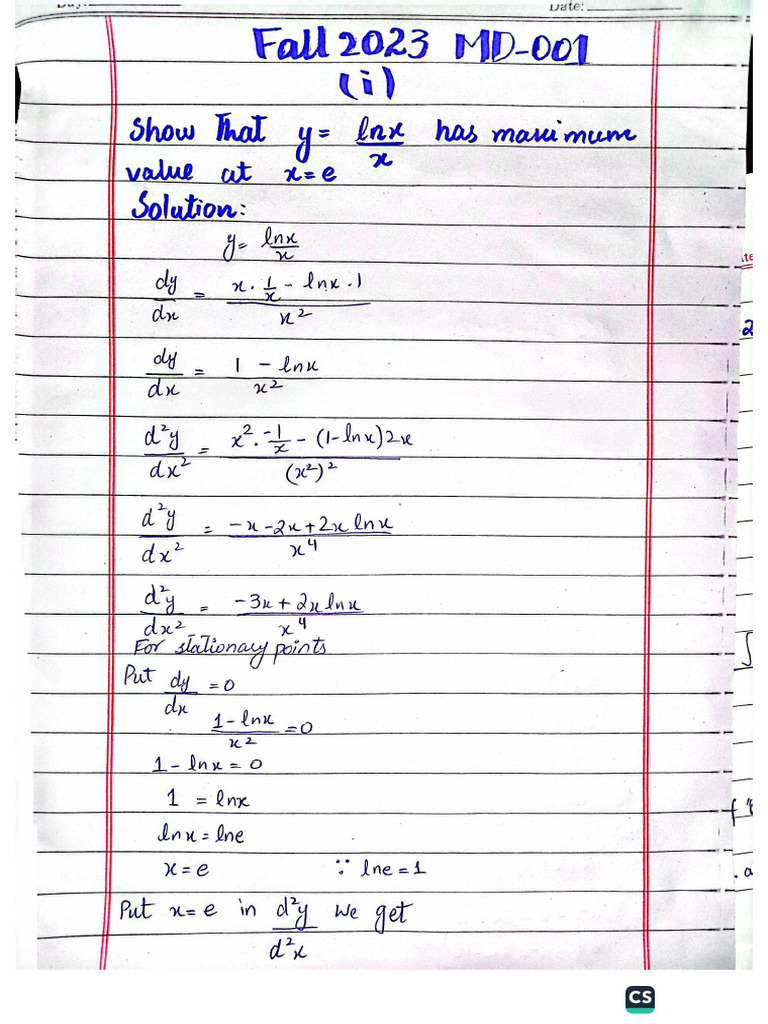 Date:
Fall 2023 MD-001
(i)
Show That y = lnx/x has maximum
value at x=e
Solution:
y= lnx/x
dy/dx = (x · 1/x - lnx · 1)/x²
dy/dx = (1 - lnx)/x²
d²y/dx² = (x² · -1/x - (1-lnx)2x)/(x²)²
d²y/dx² = (-x-2x+2x lnx)/x⁴
d²y/dx² = (-3x+2x lnx)/x⁴
For stationary points
Put dy/dx = 0
(1-lnx)/x² = 0
1-lnx = 0
1 = lnx
lnx = lne
x=e ∵ lne=1
Put x=e in d²y/d²x we get
CS